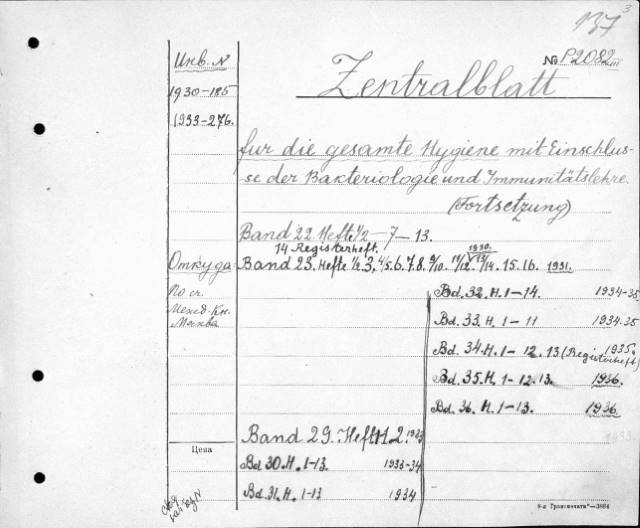 137 3
№ P2082 III
Инв. N
Zentralblatt
1930-185
1933-276.
für die gesamte Hygiene mit Einschlus-
se der Bakteriologie und Immunitätslehre.
(Fortsetzung)
Band 22 Hefte 1/2 - 7 - 13.
14 Registerheft. 1930.
Откуда
Band 23. Hefte 1/2. 3. 4/5. 6. 7. 8. 9/10. 11/12. 13/14. 15. 16. 1931.
По сч.
Межд. Кн.
Москва
Bd. 32. H. 1-14. 1934-35
Bd. 33. H. 1-11 1934-35
Bd. 34. H. 1-12. 13 (Registerheft) 1935.
Bd. 35. H. 1-12. 13. 1936.
Bd. 36. H. 1-13. 1936
1933
Band 29. Heft 1. 2. 1933
Цена
Bd 30. H. 1-13. 1933-34
Bd. 31. H. 1-13 1934
6-я Транспечать—3884